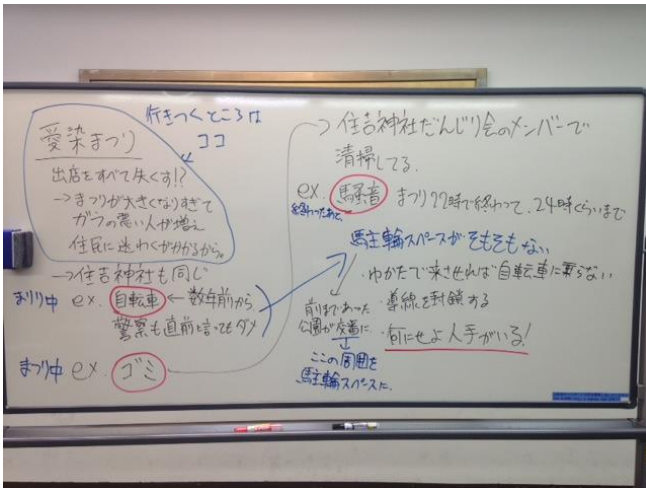 愛染まつり
行きつくところは
ココ
出店をすべて失くす!?
→まつりが大きくなりすぎて
ガラの悪い人が増え
住民に迷わくがかかるから。
→住吉神社も同じ
まつり中 ex. 自転車 ← 数年前から
警察も直前と言ってもダメ
まつり中 ex. ゴミ
→住吉神社だんじり会のメンバーで
清掃してる.
ex. 騒音 まつり22時で終わって、24時くらいまで
終わったあと、
駐輪スペースがそもそもない
・ゆかたで来させれば自転車に乗らない
・導線を封鎖する
・何にせよ人手がいる!
前まであった
公園が交番に.
ここの周囲を
駐輪スペースに.